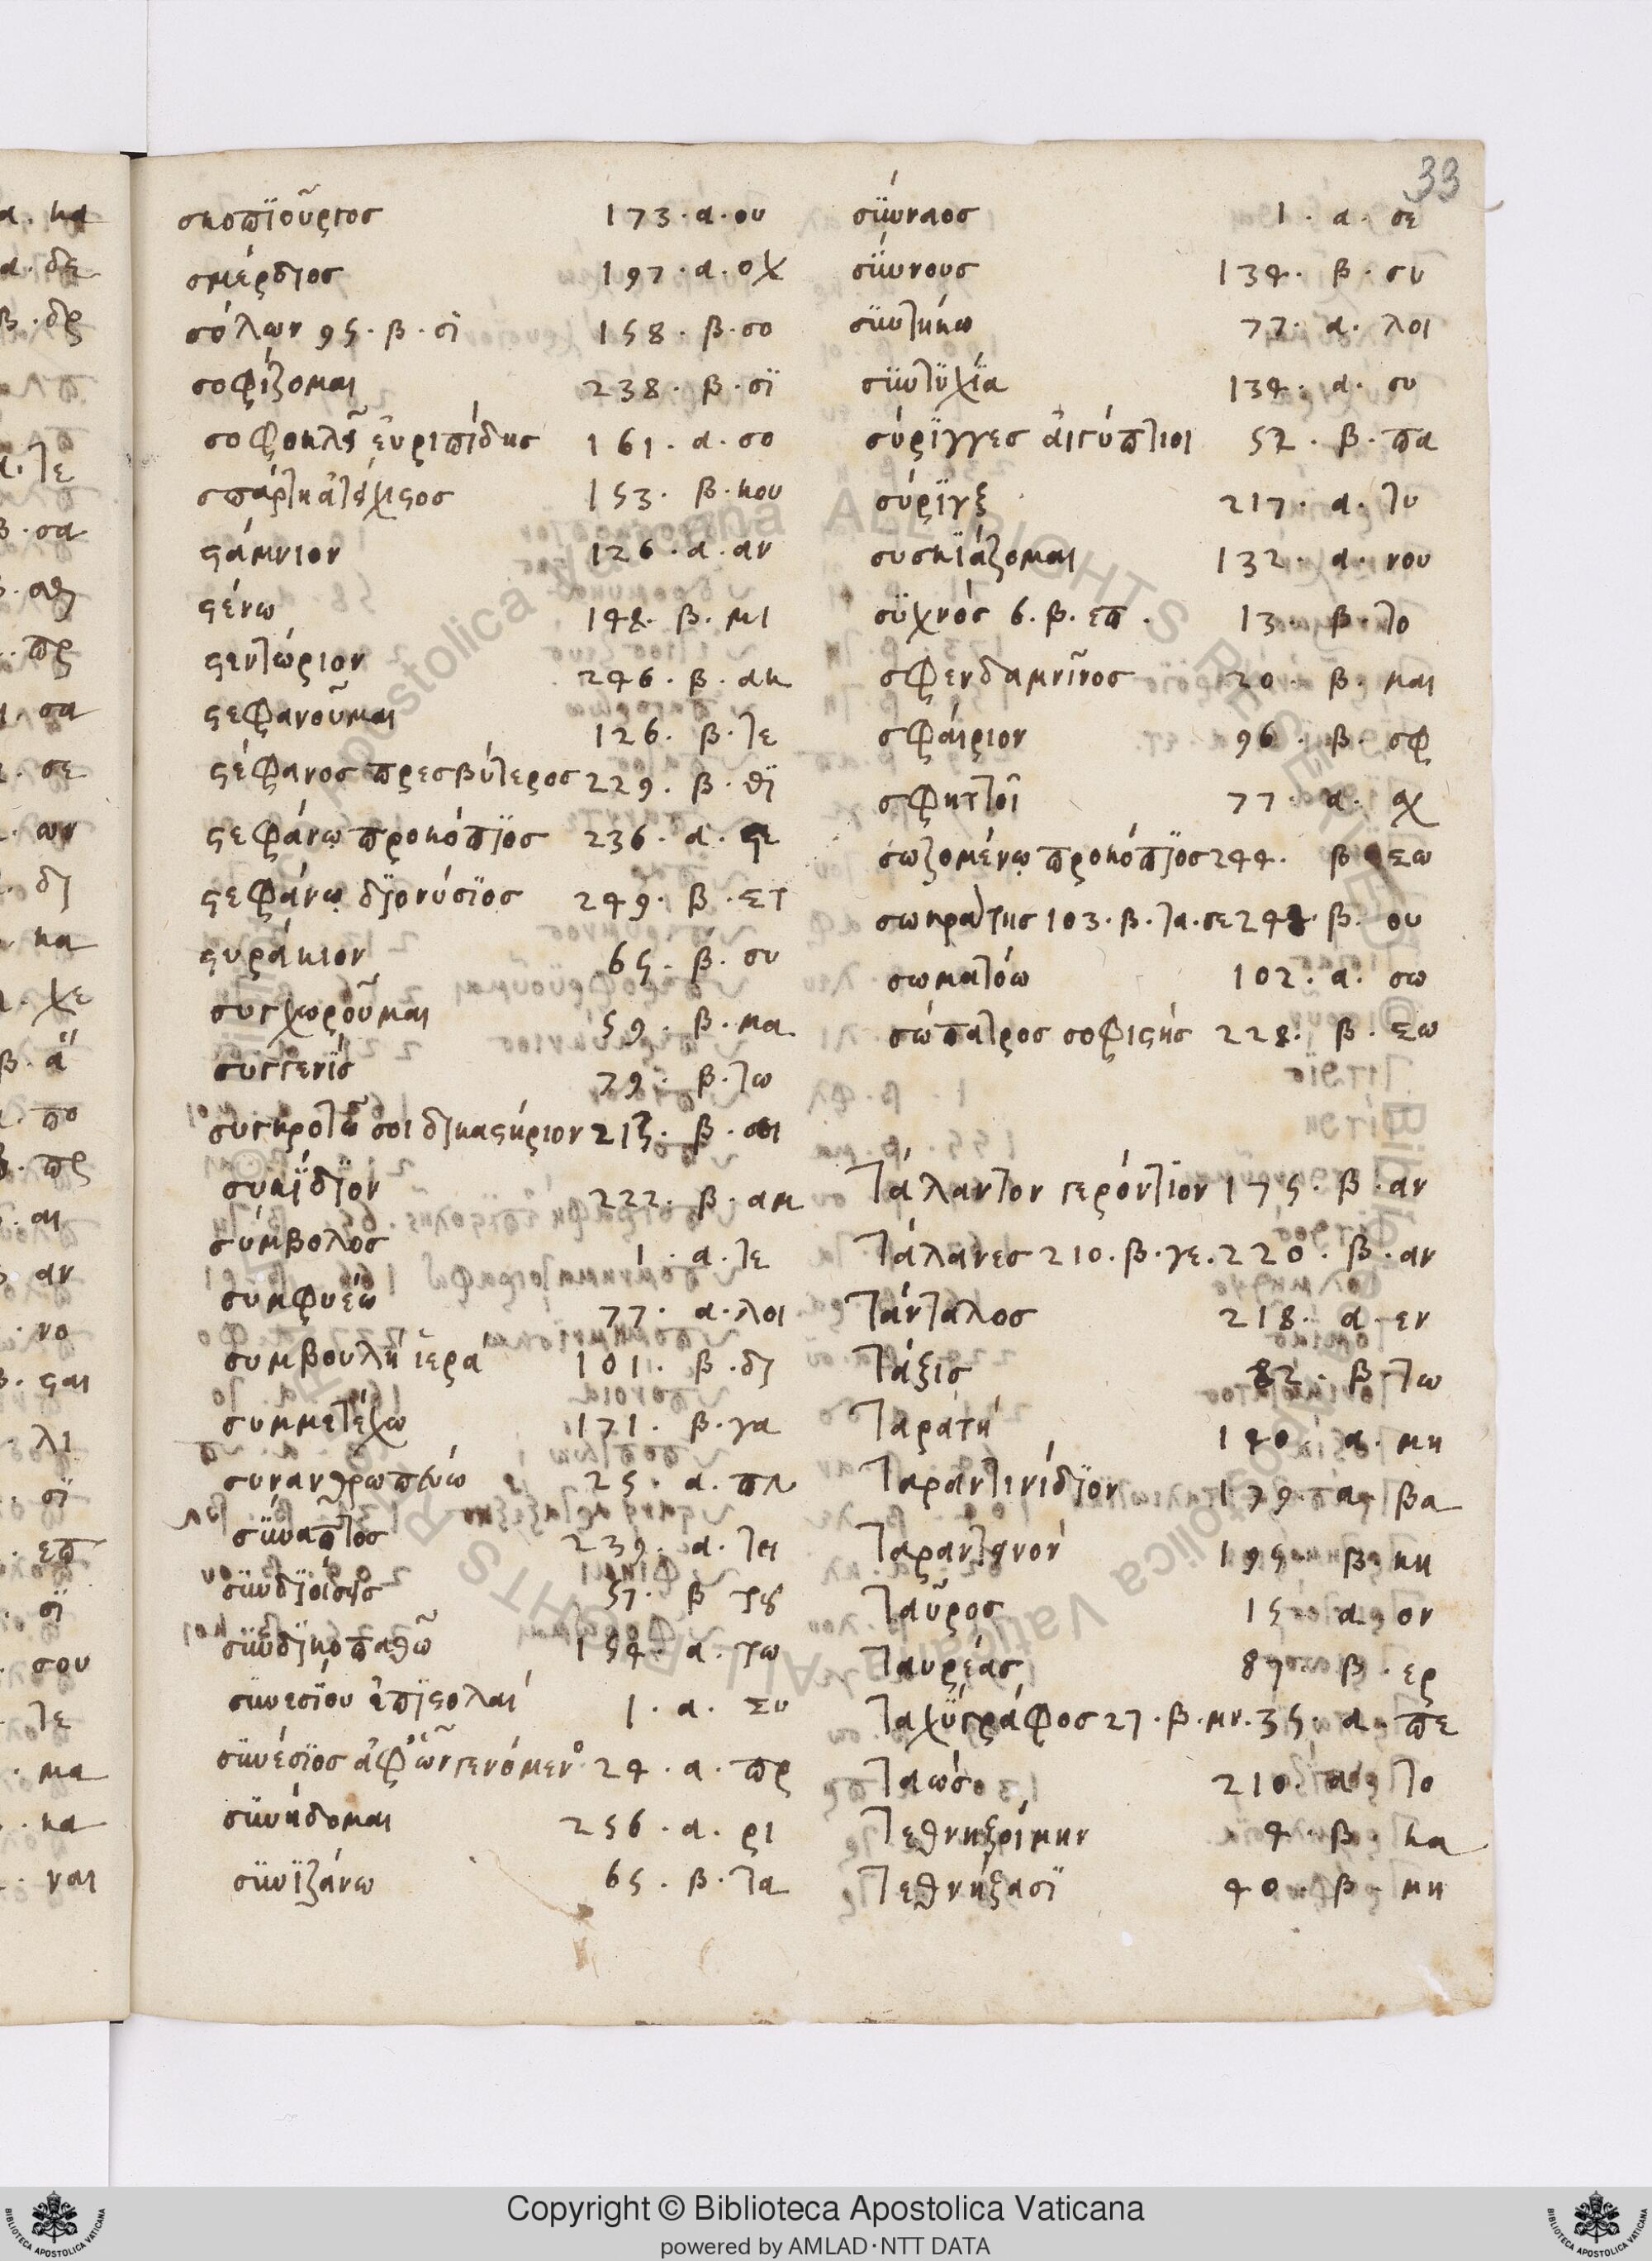 33
σκοπϊοῦρτος 173 · α · ου
σμέρδιος 197 · α · οχ
σόλων 95 · β · σϊ 158 · β · σο
σοφίζομαι 238 · β · σϊ
σοφοκλῆς ἐυριπίδης 161 · α · σο
σπάρτη ἀτείχιστος 153 · β · κου
στάμνιον 126 · α · αν
στένω 148 · β · μι
στεντώριον 246 · β · ακ
στεφανοῦμαι 126 · β · τε
στέφανος πρεσβύτερος 229 · β · θϊ
στεφάνῳ προκόπϊος 236 · α · στε
στεφάνῳ δϊονύσϊος 249 · β · ετ
στυράκιον 65 · β · συ
συγχωροῦμαι 59 · β · μα
συγγενίς 79 · β · τω
συγκροτῶ σοι δικαστήριον 215 · β · σοι
συκίδϊον 222 · β · αμ
σύμβολος 1 · α · τε
συμφυέω 77 · α · λοι
συμβουλή ἱερά 101 · β · δϊ
συμμετέχω 171 · β · γα
συνανθρωπεύω 25 · α · πλ
σύναπτος 239 · α · τει
συνδϊοίσεις 57 · β
συνδϊκοπαθῶ 154 · α · τω
συνεσίου ἐπϊστολαί 1 · α · συ
συνέσϊος ἀφ' ὧν γενόμενος 24 · α · πρ
συνήδομαι 256 · α · ρι
συνϊζάνω 65 · β · τα
σύνναος 1 · α · σε
σύννους 134 · β · συ
συντήκω 77 · α · λοι
συντυχία 134 · α · συ
σύριγγες ἀιγύπτιοι 52 · β · πα
σύριγξ 217 · α · τυ
συσκϊάζομαι 132 · α · νου
συχνός 6 · β · επ · 13 · β · το
σφενδαμνῖνος 20 · β · μαι
σφαίριον 96 · β · σφ
σφηττοῖ 77 · α · αχ
σωζομένῳ προκόπϊος 244 · β · σω
σωκράτης 103 · β · τα · σε 248 · β · ου
σωματόω 102 · α · σω
σώπατρος σοφιστής 228 · β · σω
τάλαντον γερόντϊον 175 · β · αν
τάλανες 210 · β · γε · 220 · β · αν
τάνταλος 218 · α · εν
τάξις 82 · β · τω
ταραχή 140 · α · μη
ταραντινίδϊον 179 · α · βα
ταραντεινόν 195 · β · κη
ταῦρος 15 · α · ον
ταυρέας 87 · β · ερ
ταχυγράφος 27 · β · μν · 35 · α · πε
ταώς 210 · α · το
τεθνηξοίμην 4 · β · κα
τεθνήξασϊ 40 · β · μη
Copyright © Biblioteca Apostolica Vaticana
powered by AMLAD·NTT DATA